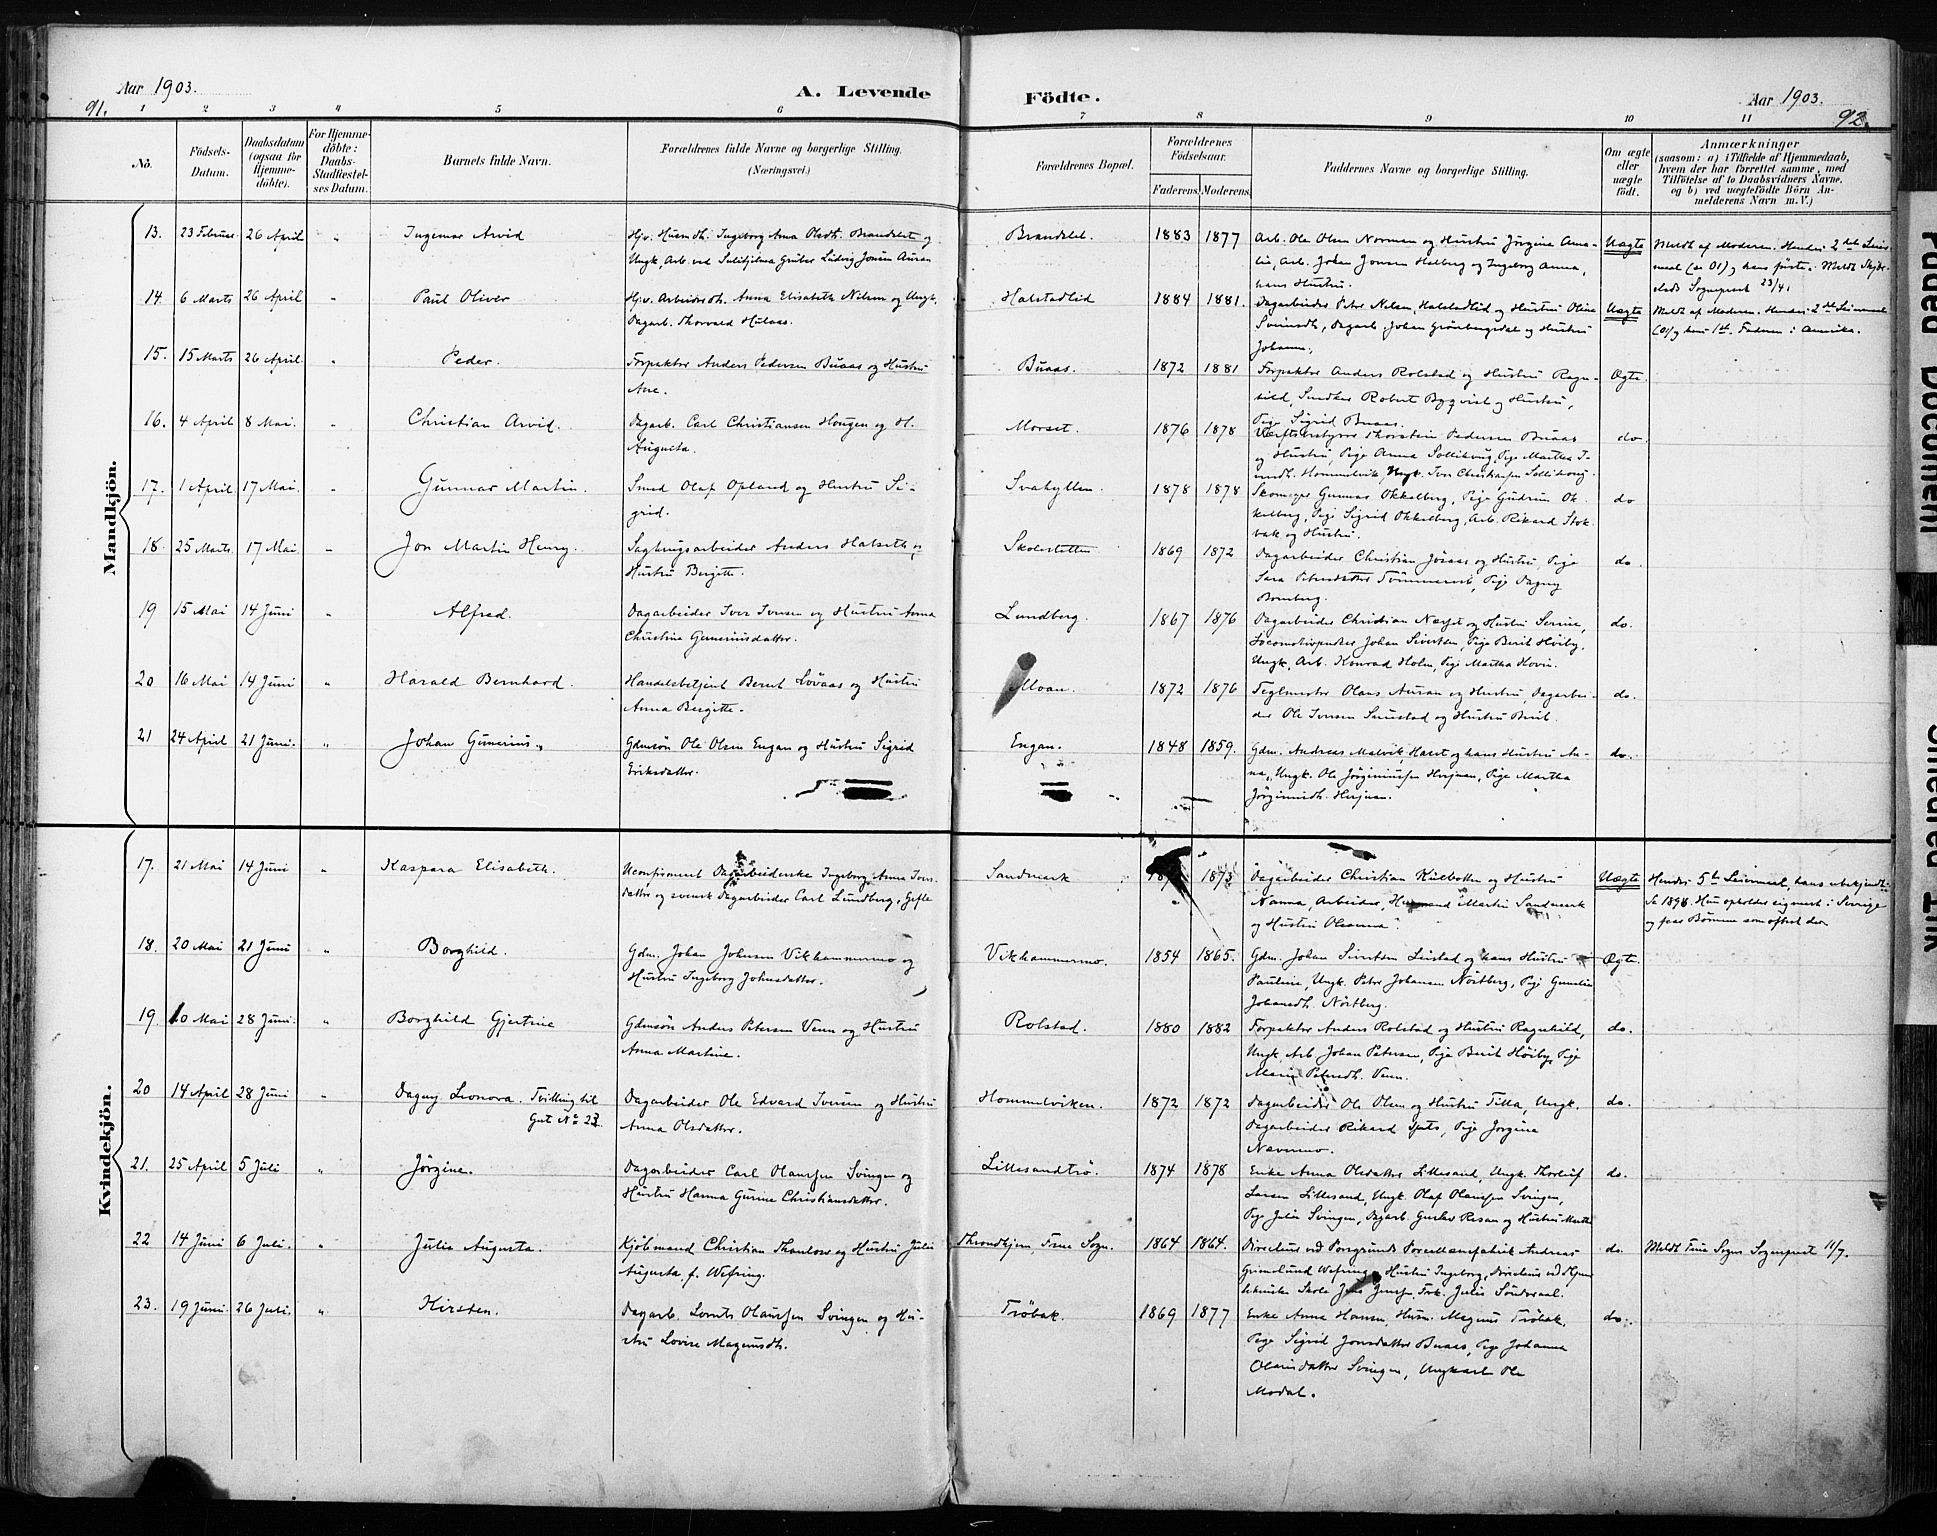 Aar 1903.
91.
A. Levende
Födte.
Aar 1903.
92.
1 2 3 4 5 6 7 8 9 10 11
No.
Födsels-Datum.
Daabsdatum (ogsaa for Hjemme-döbte).
For Hjemme-döbte: Daabs-Stadfæstelses Datum.
Barnets fulde Navn.
Forældrenes fulde Navne og borgerlige Stilling. (Næringsvei.)
Forældrenes Bopæl.
Forældrenes Födselsaar.
Faderens. Moderens.
Faddernes Navne og borgerlige Stilling.
Om ægte eller uægte födt.
Anmærkninger
(saasom: a) i Tilfælde af Hjemmedaab, hvem der har forrettet samme, med Tilföielse af to Daabsvidners Navne, og b) ved uægtefödte Börn Anmelderens Navn m. V.)
Mandkjön.
13. 23 Februar 26 April " Ingemar Arvid
Hjv. Husmdt. Ingeborg Anna Olsdt. Brandslet og
Ungk. Arb. ved Sulitjelma Gruber Ludvig Jonsen Auran
Brandslet. 1883 1877
Arb. Ole Olsen Norman og Hustru Jörgine Ama-
lia, Arb. Johan Jonsen Halberg og Ingeborg Anna,
hans Hustru.
Uægte
Meldt af Moderen. Hendes 2det Leier-
maal (01) og hans förste. Meldt
Sognepræst 23/4.
14. 6 Marts 26 April " Paul Oliver
Hjv. Arbeiderdt. Anna Elisabeth Nilsen og Ungk.
Dagarb. Thorvald Hulaas.
Halstadlid 1884 1881.
Dagarbeider Peter Nilsen Halstadlid og Hustru Olina
Svensdt., Dagarb. Johan Grönbergsdal og Hustru
Johanna,
Uægte
Meldt af Moderen. Hendes 2det Leiermaal
(01) og hans 1ste. Faderen i Amerika.
15. 15 Marts 26 April " Peder.
Forpakter Anders Pedersen Buaas og Hustru
Ane.
Buaas. 1872 1881
Forpakter Anders Rolstad og Hustru Ragn-
hild, Snedker Robert Bygvist og Hustru,
Pige Sigrid Buaas.
Ægte
16. 4 April 8 Mai. " Christian Arvid.
Dagarb. Carl Christiansen Hougen og H.
Augusta.
Morset. 1876 1878
Værftsbestyrer Thorstein Pedersen Buaas
og Hustru, Pige Anna Solliskvug, Pige Martha
Hommelvik, Ungk. Ivar Christiansen
do
17. 1 April 17 Mai. " Gunnar Martin.
Smed Olaf Opland og Hustru Si-
grid.
Svahyllen. 1878 1878
Skomager Gunnar Okkelberg, Pige Gudrun Ok-
kelberg, Pige Sigrid Okkelberg, Arb. Rikard Stok-
bak og Hustru.
do
18. 25 Marts 17 Mai " Jon Martin Henry.
Sagbrugsarbeider Anders Halseth og
Hustru Bergitte.
Skolesletten 1869 1872
Dagarbeider Christian Jösaas og Hustru, Pige
Sara Petersdatter Pige Dagny
Bromberg.
do.
19 15 Mai 14 Juni " Alfred.
Dagarbeider Iver Iversen og Hustru Anna
Christine Gunneriusdatter.
Lundberg. 1867 1876
Dagarbeider Christian Næset og Hustru Serine,
Locomotivpudser Johan Sivertsen, Pige Berit Höiby,
Ungk. Arb. Konrad Holm, Pige Martha Hovin.
do.
20 16 Mai 14 Juni " Harald Bernhard.
Handelsbetjent Bernt Lövaas og Hustru
Anna Bergitte.
Moan. 1872 1876
Teglmester Olaus Auran og Hustru, Dagarbei-
der Ole Iversen Smistad og Hustru Berit.
do.
21 24 April 21 Juni. " Johan Gunerius.
Gdmsön Ole Olsen Engan og Hustru Sigrid
Eriksdatter.
Engan. 1848 1859.
Gdm. Andreas Malvik, og hans Hustru An-
na, Ungk. Ole Jörginiussen Herjuan, Pige Martha
Jörginiusdt. Herjuan.
do.
Kvindekjön.
17. 21 Mai 14 Juni " Kaspara Elisabeth.
Uconfirmert Dagarbeiderske Ingeborg Anna Ivers-
datter og svensk Dagarbeider Carl Lundberg, Gefle
Sandmark 1873
Dagarbeider Christian Kulbotten og Hustru
Nanna, Arbeider, Martin Sandmark
og Hustru Olavana.
Uægte
Hendes 5te Leiermaal, hans ubekjendt.
1898. Hun opholder sig mest i Sverige
og faar Börnene som oftest der
18. 20 Mai 21 Juni " Borghild.
Gdm. Johan Johnsen Vikhammermo og
Hustru Ingeborg Johnsdatter.
Vikhammermo. 1854 1865.
Gdm. Johan Sivertsen Leistad og hans Hustru
Pauline, Ungk. Peter Johansen Nöstberg, Pige Gunelie
Johansdt. Nöstberg.
Ægte.
19. 10 Mai 28 Juni. " Borghild Gjertine
Gdmsön Anders Petersen Venn og Hustru
Anna Martine.
Rolstad. 1880 1882
Forpakter Anders Rolstad og Hustru Ragnhild,
Ungk. Arb. Johan Petersen, Pige Berit Höiby, Pige
Marie Petersdt. Venn.
do.
20 14 April 28 Juni " Dagny Leonora. Tvilling til
Gut No 23.
Dagarbeider Ole Edvard Iversen og Hustru
Anna Olsdatter.
Hommelviken. 1872 1872
Dagarbeider Ole Olsen og Hustru Tilla, Ungk.
Dagarbeider Rikard Spets, Pige Jörgine
Nævermo.
do.
21. 25 April 5 Juli " Jörgine.
Dagarbeider Carl Olaussen Svingen og
Hustru Hanna Gurine Christiansdatter.
Lillesandtrö. 1874 1878
Enke Anna Olsdatter Lillesand, Ungk. Thorleif
Larsen Lillesand, Ungk. Olaf Olaussen Svingen,
Pige Julie Svingen, Dagarb. Gustav Risan og Hustru Martha
do.
22 14 Juni 6 Juli. " Julie Augusta.
Kjöbmand Christian Thaulow og Hustru Julie
Augusta f. Wefring.
Throndhjem, Frue Sogn. 1864 1864.
Directeur ved Porsgrunds Porcellænsfabrik Andreas
Grimelund Wefring, Hustru Ingeborg, Directeur ved
tekniske Skole Jens Jensen Frk. Julie Söndersaal.
do.
Meldt Frue Sogns Sognepræst 11/7.
23. 19 Juni. 26 Juli. " Kirsten.
Dagarb. Lornts Olaussen Svingen og Hu-
stru Lovise Magnusdt.
Tröbak. 1869 1877
Enke Anna Hansen, Husm. Magnus Tröbak,
Pige Sigrid Jonsdatter Buaas, Pige Johanna
Olausdatter Svingen, Ungkarl Ole
Modal.
do.
Faded Document
Smeared Ink